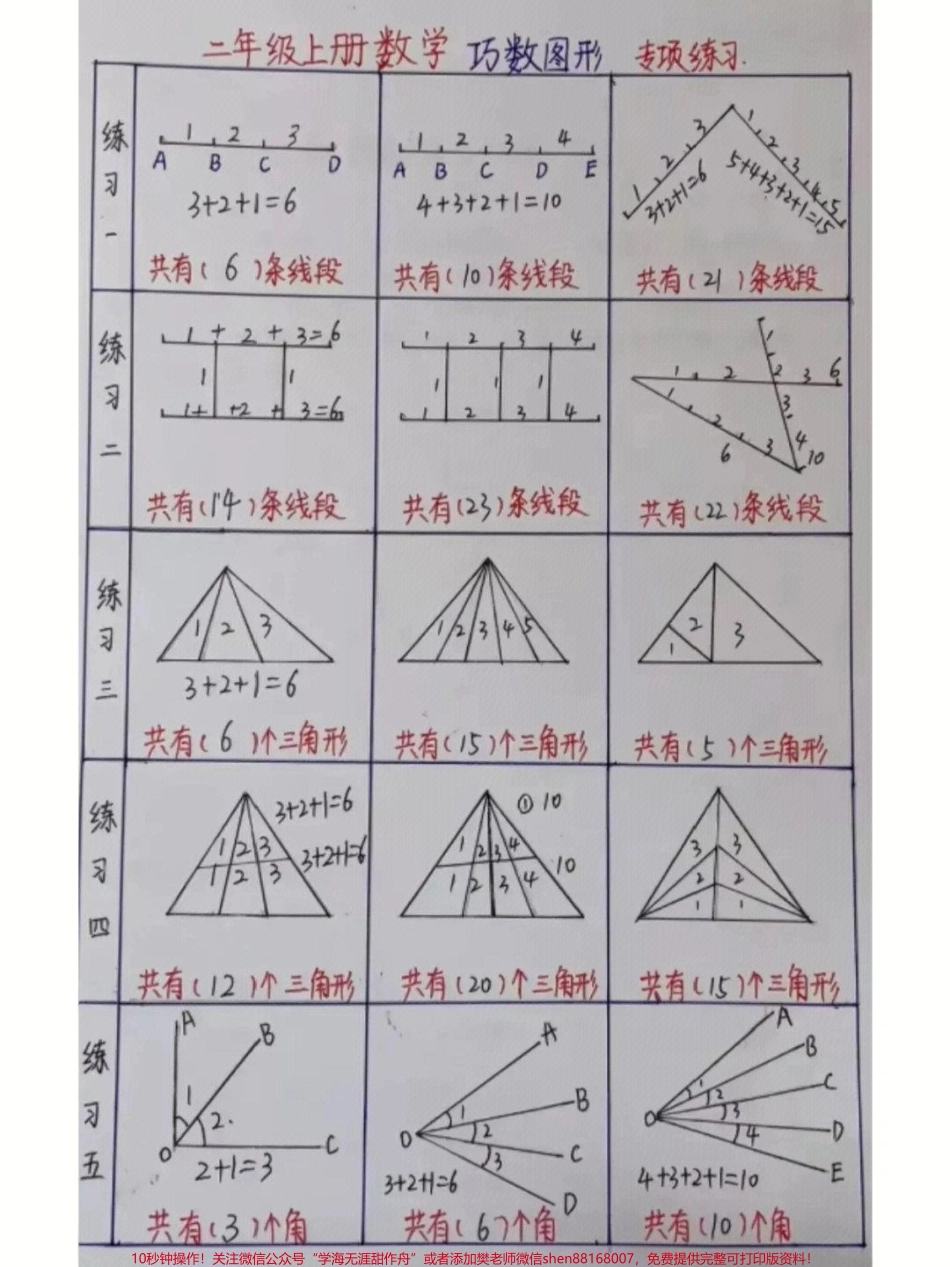 二年级上册数学 巧数图形 专项练习.
练习一
1 2 3
A B C D
3+2+1=6
共有(6)条线段
1 2 3 4
A B C D E
4+3+2+1=10
共有(10)条线段
1 2 3
3+2+1=6
1 2 3 4 5
5+4+3+2+1=15
共有(21)条线段
练习二
1 + 2 + 3=6
1 1
1+ +2 + 3=6
共有(14)条线段
1 2 3 4
1 1 1
1 2 3 4
共有(23)条线段
1 2 3 6
1 2 3 4 10
1 2 3 6
共有(22)条线段
练习三
1 2 3
3+2+1=6
共有(6)个三角形
1 2 3 4 5
共有(15)个三角形
1 2 3
共有(5)个三角形
练习四
3+2+1=6
1 2 3
3+2+1=6
1 2 3
共有(12)个三角形
① 10
1 2 3 4
10
1 2 3 4
共有(20)个三角形
3 3
2 2
1 1
共有(15)个三角形
练习五
A
B
1
2.
O C
2+1=3
共有(3)个角
A
B
1
O 2
3 C
D
3+2+1=6
共有(6)个角
A
B
1 2 C
O 3
4 D
E
4+3+2+1=10
共有(10)个角
10秒钟操作！关注微信公众号“学海无涯甜作舟”或者添加樊老师微信shen88168007，免费提供完整可打印版资料！